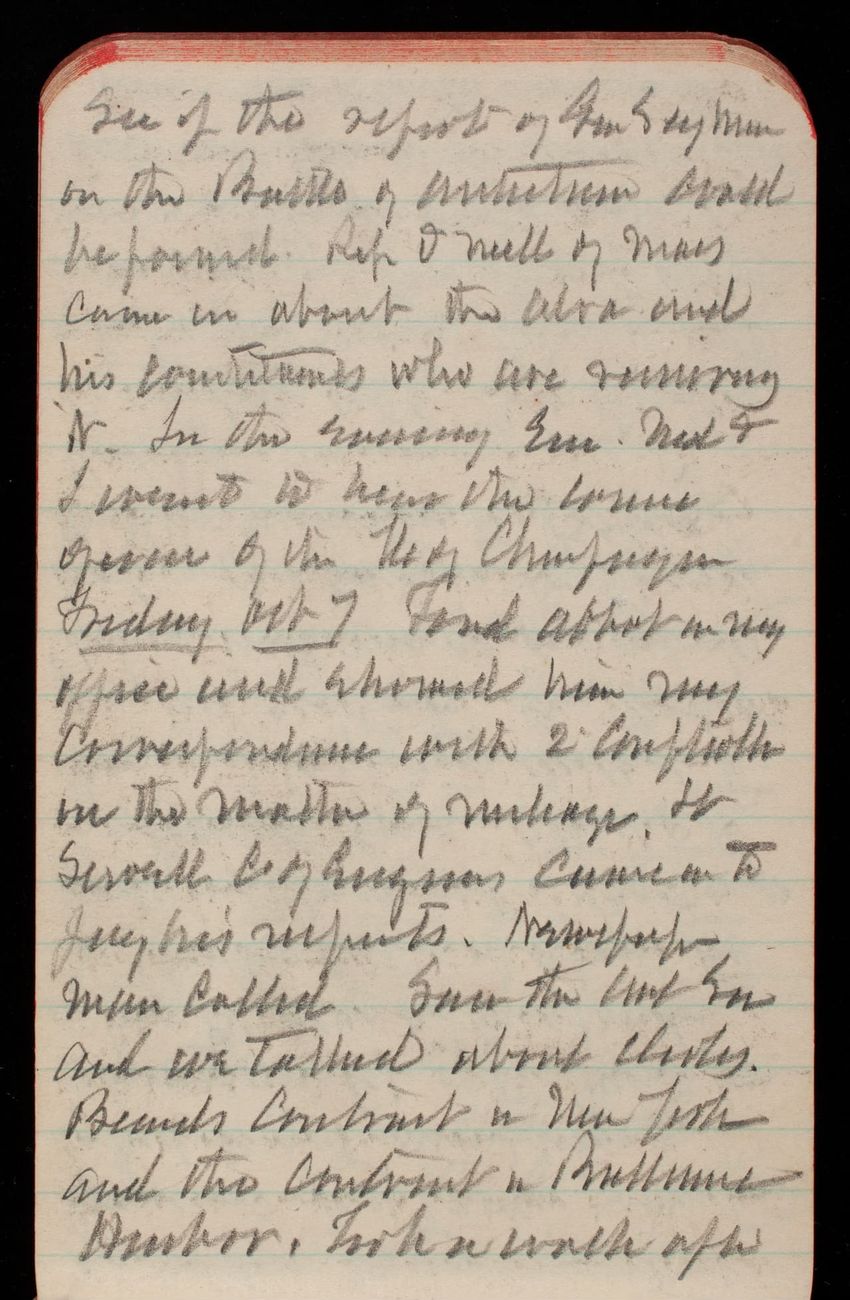 See if the report of Gen Seymour
on the Battle of Antietam could
be found. Rep O'Neill of Mass
came in about the Alva and
his constituents who are removing
it. In the evening Em. Ned &
I went to hear the comic
opera of the of Champagne
Friday Oct 7 Ford abbot in my
office and showed him my
Correspondence with 2
on the matter of mileage. Lt
Sewell C of Engineers Came in to
his respects. Newspaper
man Called. Saw the Act Sec
and we Talked about
Beards Contract in New York
and the Contract in Baltimore
Harbor. Took a walk after